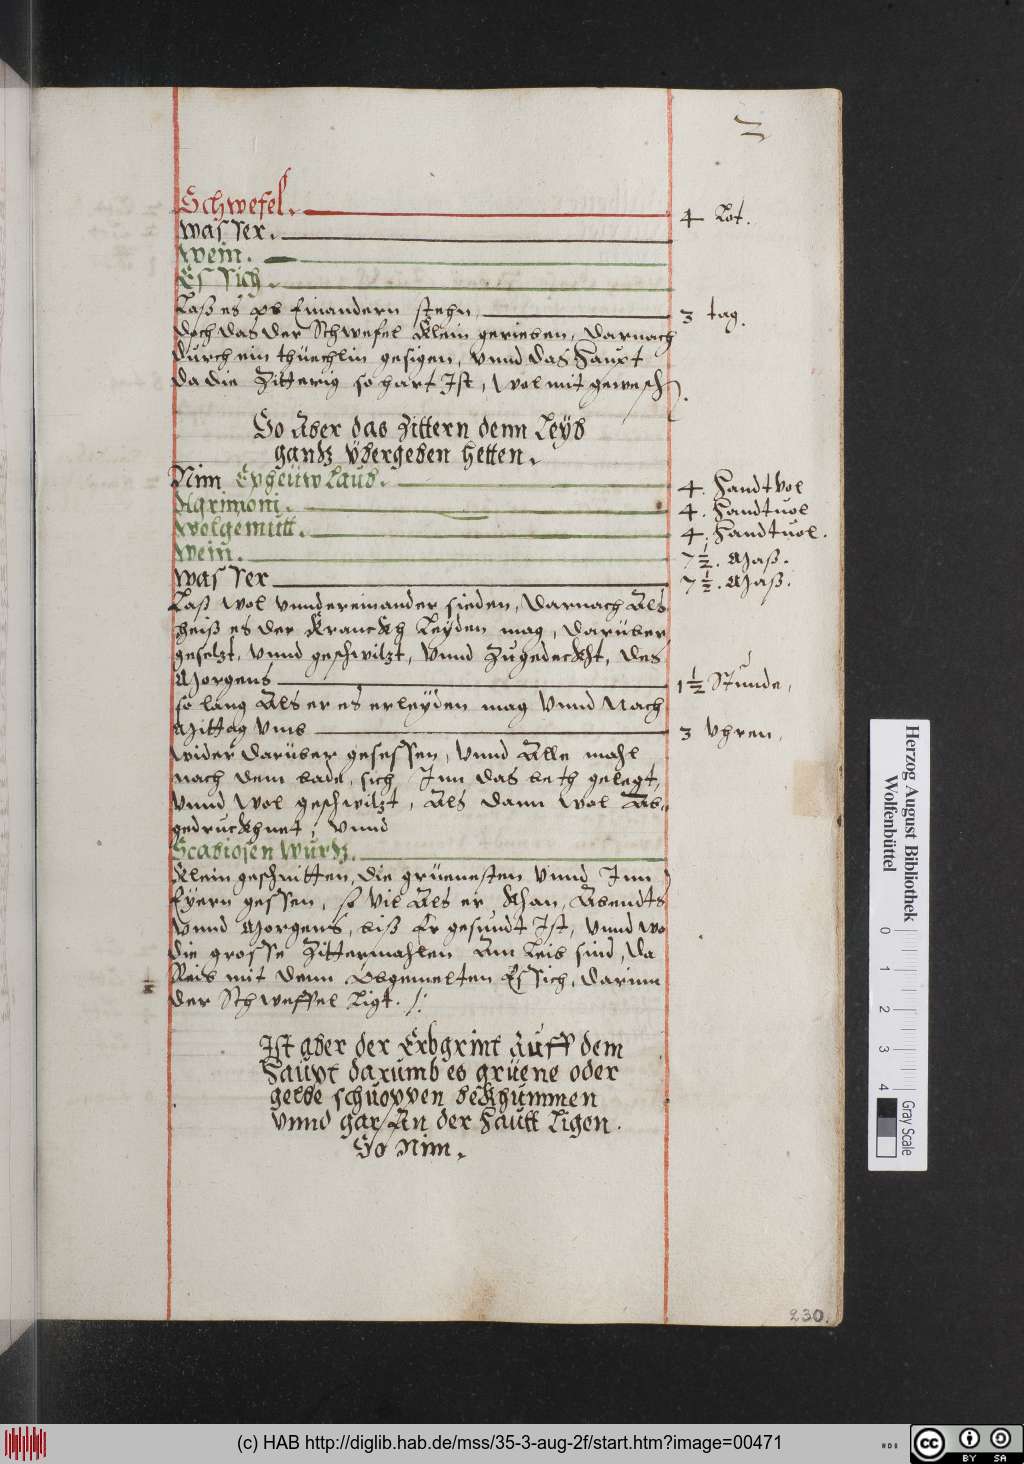 Schwefel. 4 Lot.
Wasser.
Wein.
Essich.
Laß es ob Einandern stehn, 3 tag.
doch das der Schwefel klein gerieben, darnach
durch ein thüechlin gesigen, vnnd das Haupt
da die Zitterig so hart Ist, wol mit gewesch
So Aber das Zittern denn Leÿb
gantz Übergeben hetten.
Nim Epheüw laub. 4. Handtvol
Agrimoni. 4. Handtuol
Wolgemutt. 4. Handtuol.
Wein. 7 1/2. Maß.
Wasser 7 1/2. Maß.
Laß wol vnndereinander sieden, darnach Als
heiß es der Kranckh Leyden mag, darüber
gesetzt, vnnd geschwitzt, vnnd Zugedeckht, des
Morgens 1 1/2 Stunde,
so lang Als er es erleÿden mag vnnd Nach
Mittag vmb 3 Vhren,
wider darüber gesessen, vnnd Alle mahl
nach dem bade, sich Inn das beth gelegt,
vnnd wol geschwitzt, Als dann wol Ab,
gedruckhnet, vnnd
Scabiosen Wurtz.
klein geschnitten, die grüenesten vnnd Inn
Eyern gessen, so vil Als er khan, Abendts
vnnd Morgens, biß Er gesundt Ist, vnnd wo
die grosse Zittermahlen Am Leib sind, da
Reib mit denn Obgemelten Essich, darinn
der Schweffel Ligt. /:
Ist aber der Erbgrint Auff dem
Haupt darumb es grüene oder
gelbe schuoppen bekhummen
vnnd gar An der Hautt Ligen.
So Nim.
230.
Herzog August Bibliothek
Wolfenbüttel
0 1 2 3 4
Gray Scale
(c) HAB http://diglib.hab.de/mss/35-3-aug-2f/start.htm?image=00471
cc BY SA